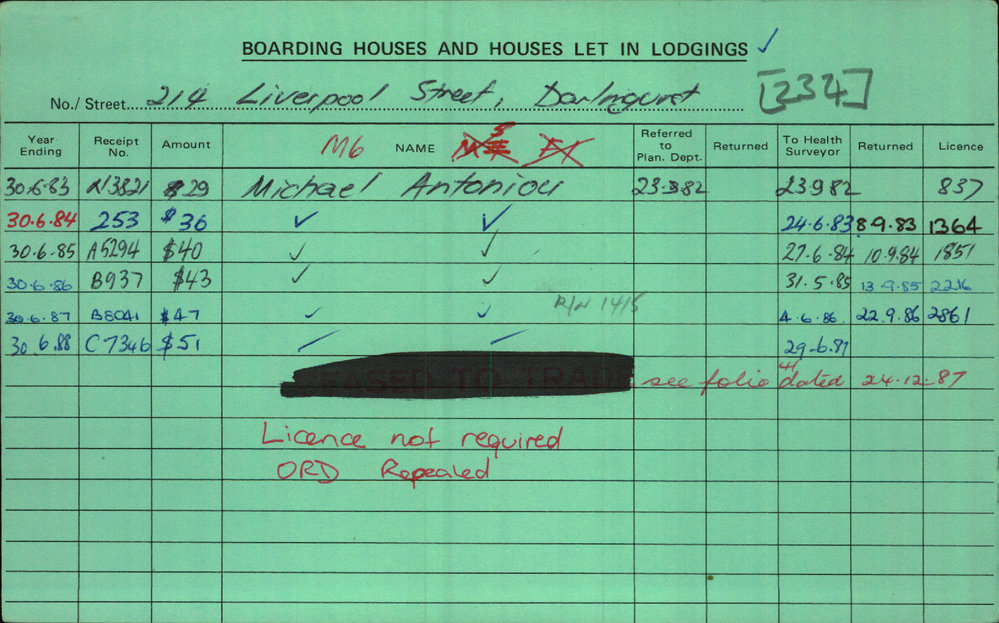 BOARDING HOUSES AND HOUSES LET IN LODGINGS ✓
No./Street... 214 Liverpool Street, Darlinghurst [234]
Year Ending Receipt No. Amount M6 NAME Referred to Plan. Dept. Returned To Health Surveyor Returned Licence
30.6.83 N3821 $29 Michael Antoniou 23.3.82 23.9.82 837
30.6.84 253 $36 ✓ ✓ 24.6.83 8.9.83 1364
30.6.85 A5294 $40 ✓ ✓ 27.6.84 10.9.84 1851
30.6.86 B937 $43 ✓ ✓ 31.5.85 13.9.85 2216
R/N 1415
30.6.87 B8041 $47 ✓ ✓ 4.6.86 22.9.86 2861
30.6.88 C7346 $51 29.6.87
CEASED TO TRADE see folio 41 dated 24.12.87
Licence not required
ORD Repealed